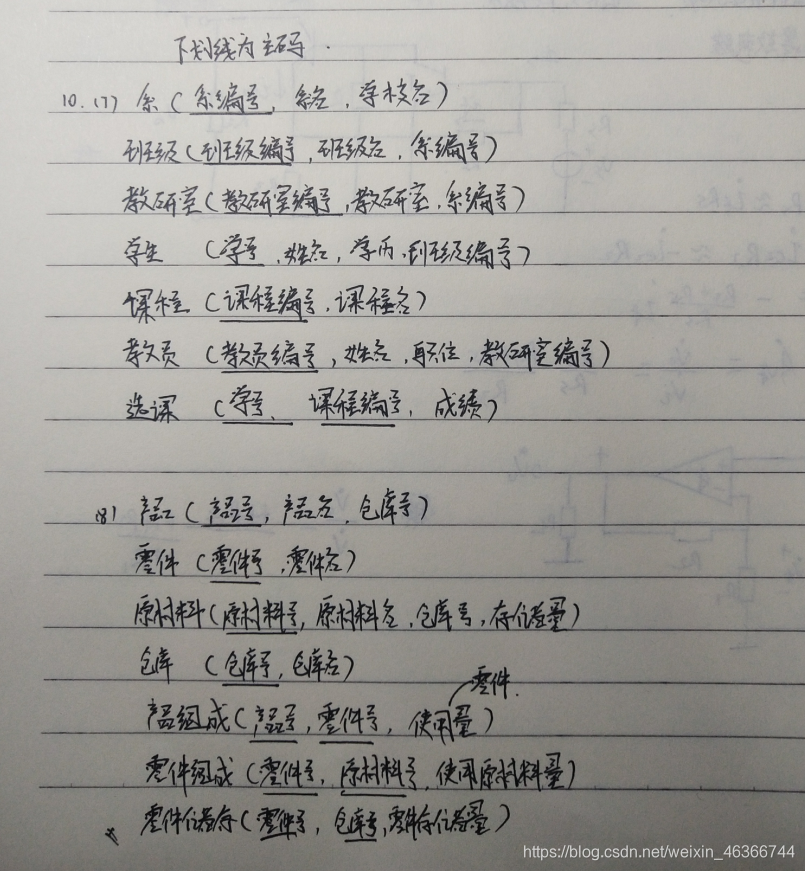 下划线为主码.
10.(7) 系(系编号,系名,学校名)
班级(班级编号,班级名,系编号)
教研室(教研室编号,教研室,系编号)
学生 (学号,姓名,学历,班级编号)
课程 (课程编号,课程名)
教员 (教员编号,姓名,职位,教研室编号)
选课 (学号、课程编号,成绩)
(8) 产品(产品号,产品名,仓库号)
零件 (零件号,零件名)
原材料(原材料号,原材料名,仓库号,存储量)
仓库 (仓库号,仓库名)
零件.
产品组成(产品号,零件号,使用量)
零件组成(零件号,原材料号,使用原材料量)
零件储存(零件号,仓库号,零件存储量)
https://blog.csdn.net/weixin_46366744